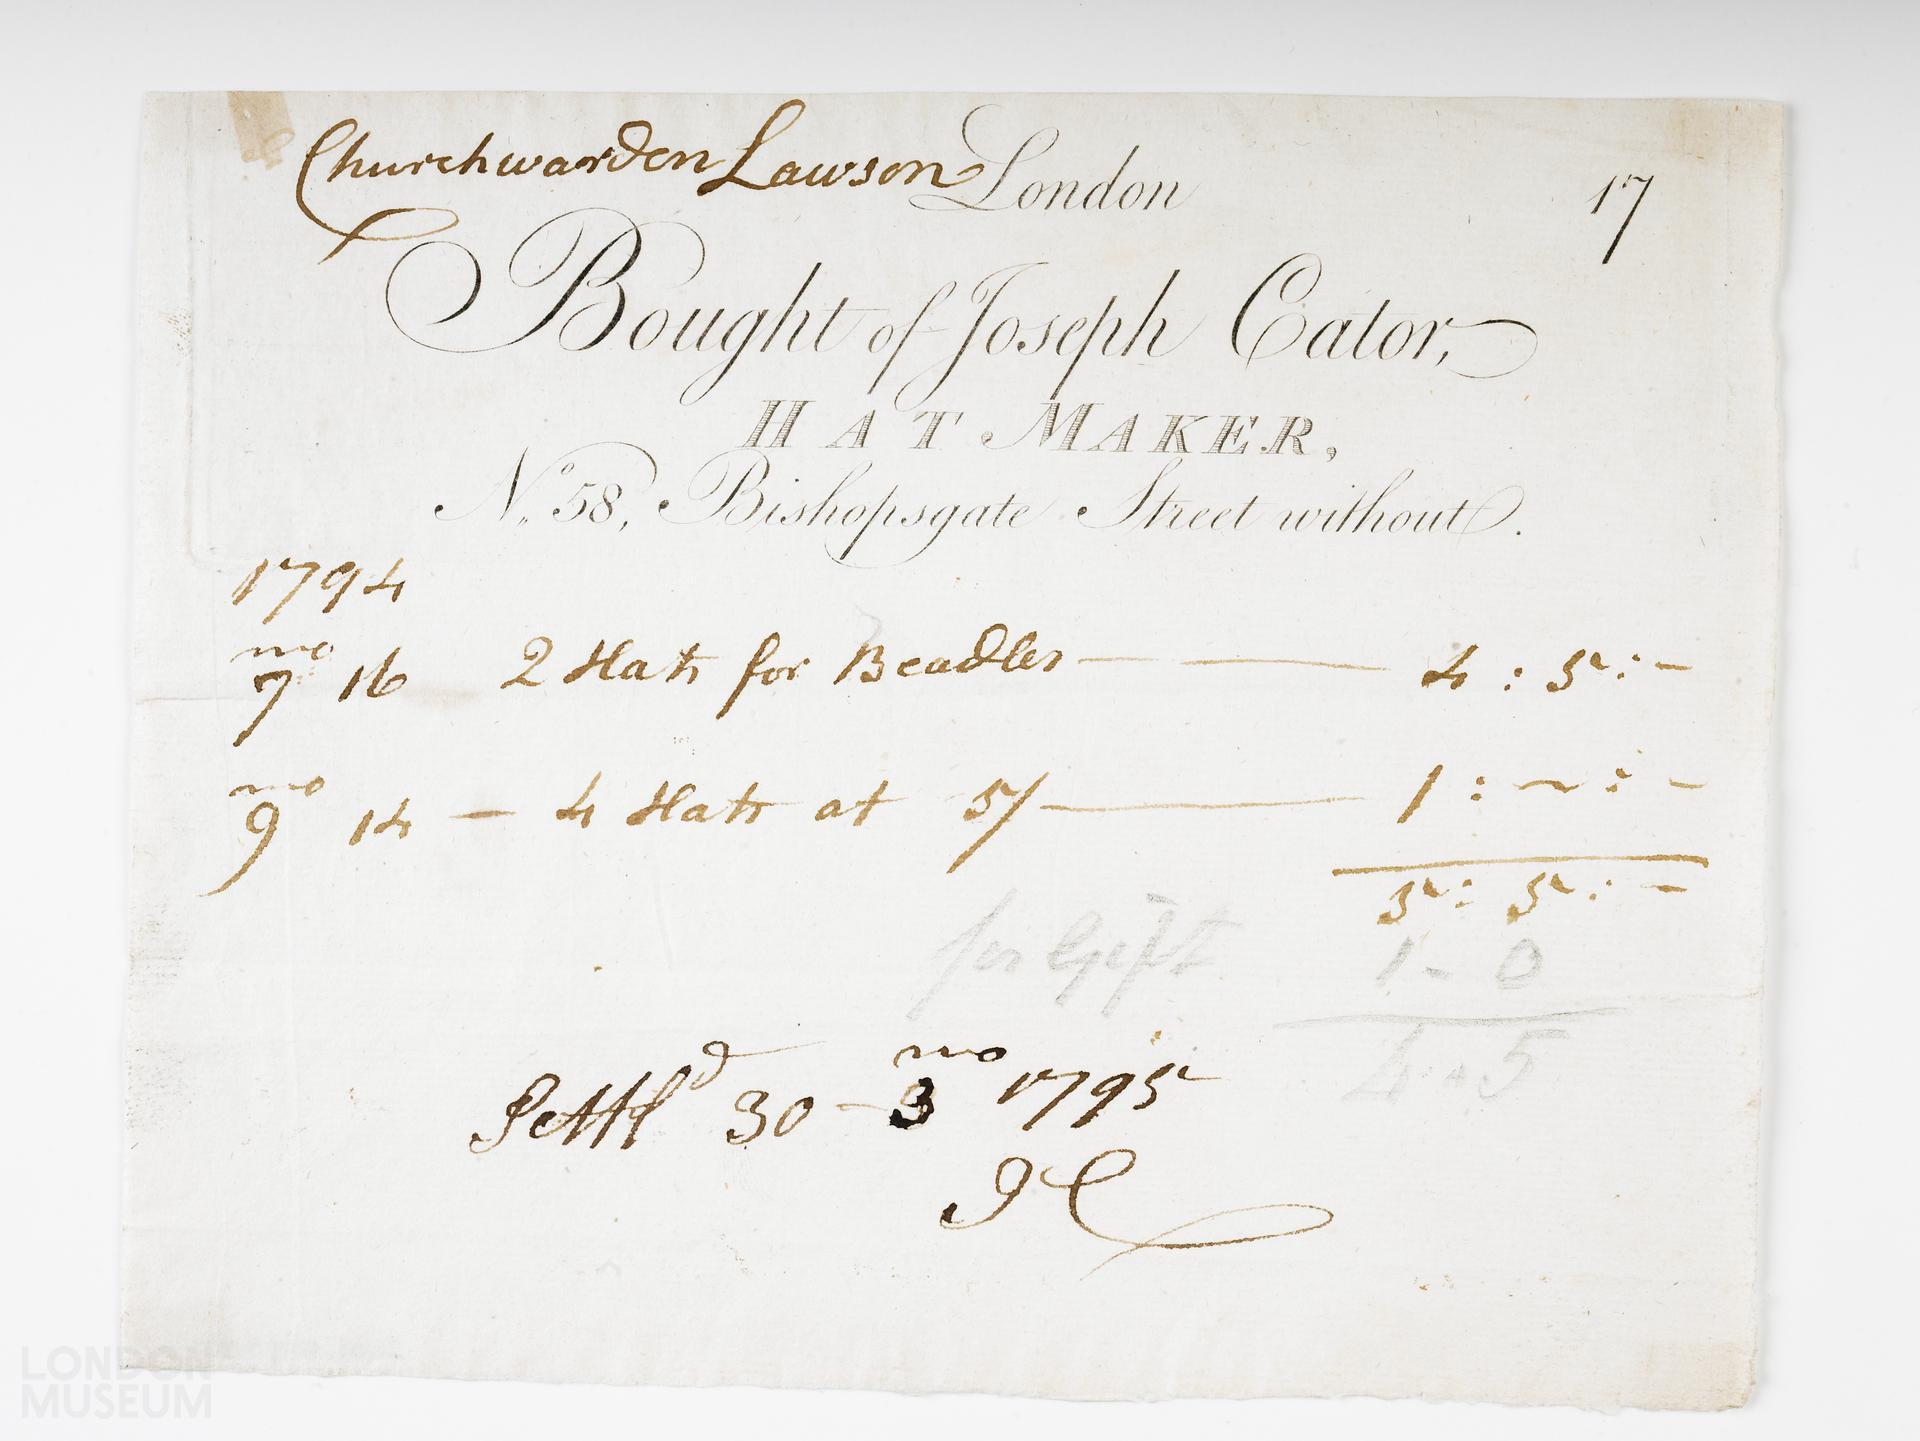 Churchwarden Lawson London 17
Bought of Joseph Cator,
HAT MAKER,
No. 58, Bishopsgate Street without.
1794
7 mo 16 2 Hats for Beadles — — 4 : 5 : –
9 mo 14 – 4 Hats at 5/ — 1 : – : –
5 : 5 : –
for Gift 1 - 0
4 - 5
Settld 30 – 3 mo 1795
JC
LONDON
MUSEUM